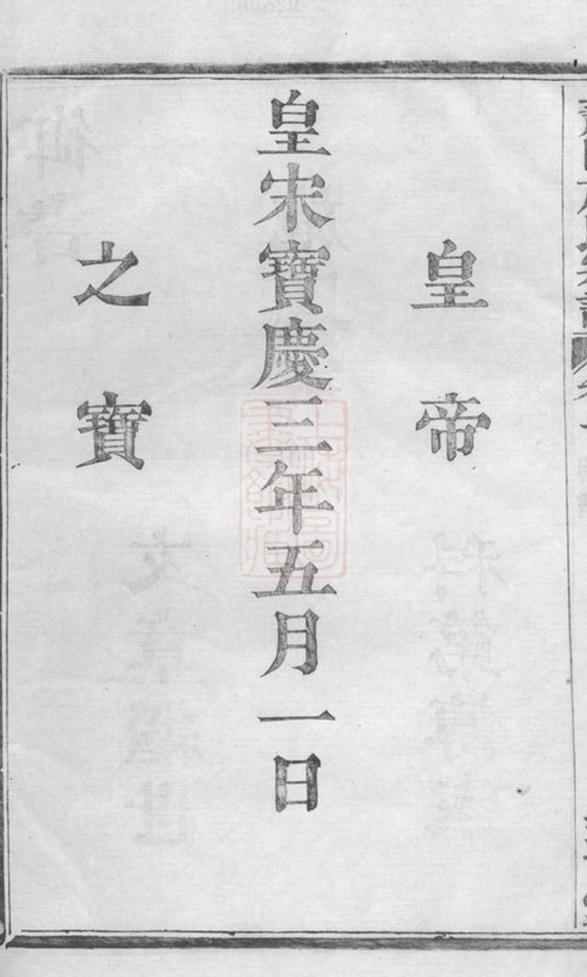 皇帝
皇宋寶慶三年五月一日
之寶